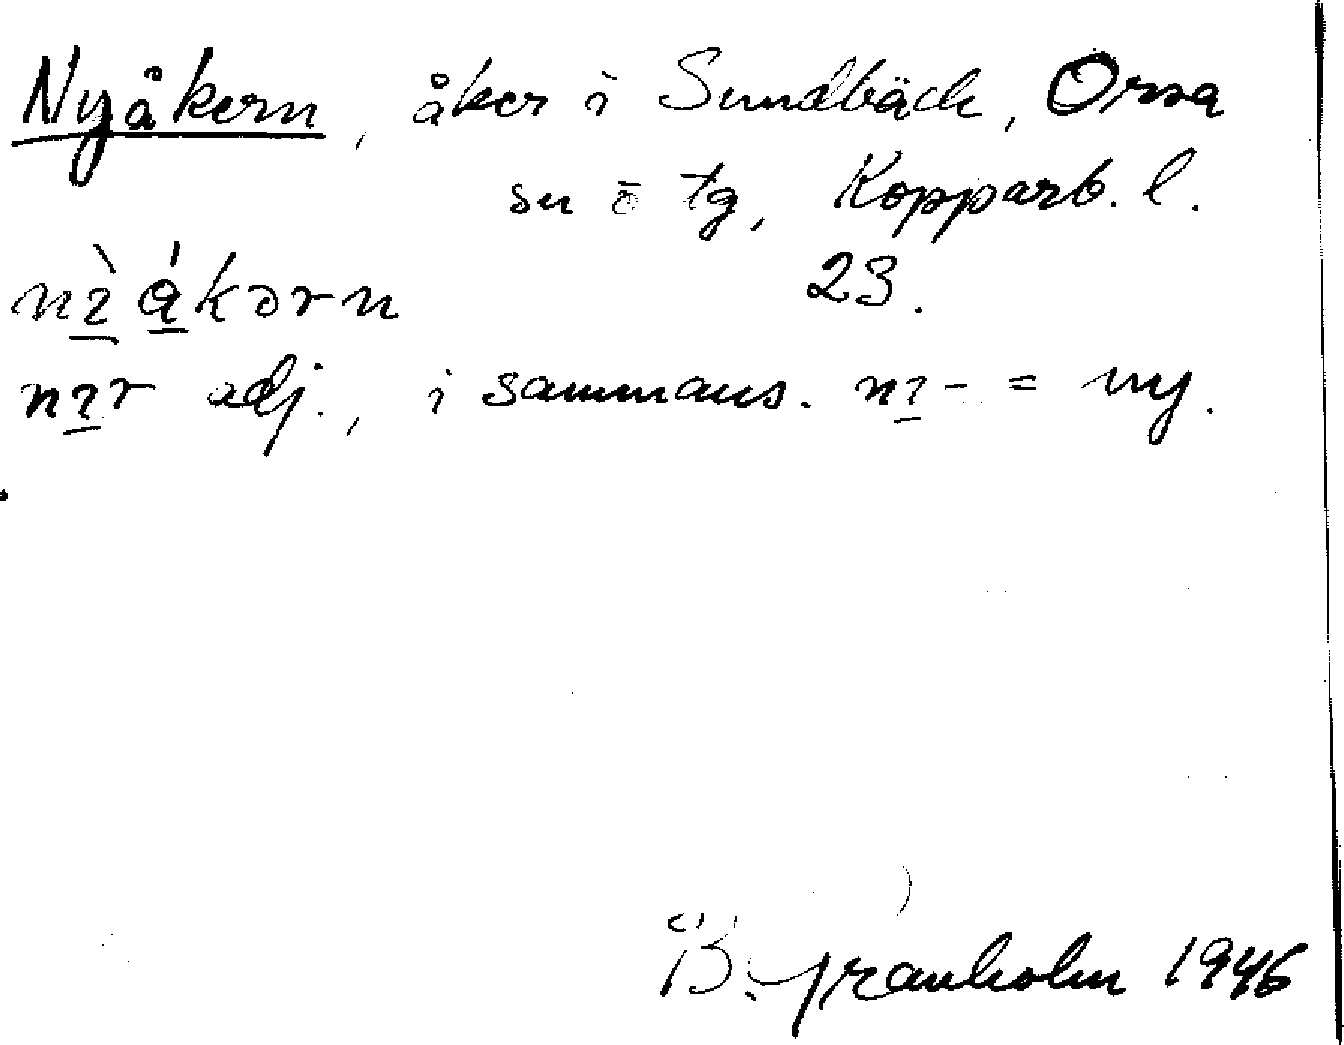 Nyåkern, åker i Sundbäck, Orsa
sn o tg, Kopparb. l.
nı̀ ákərn 23.
nır adj., i sammans. nı- = ny.
B. Granholm 1946